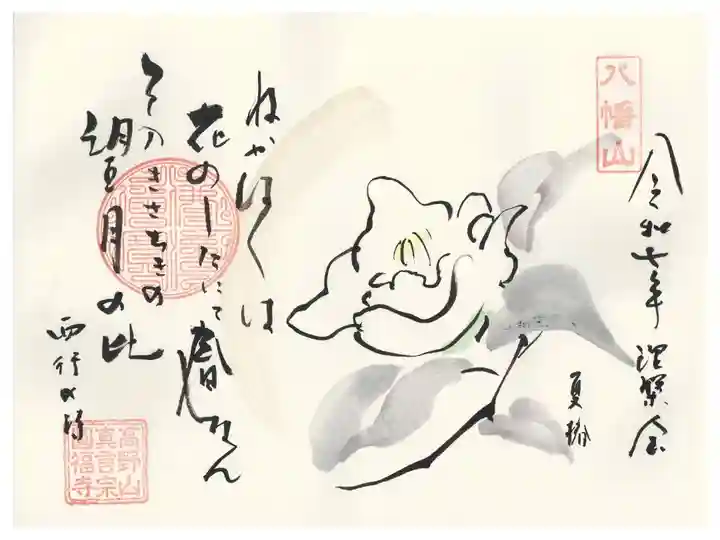 八幡山
令和七年
夏椿
ねかはくは
花のしたにて春しなん
そのきさらきの
望月の比
西行
高野山
真言宗
圓福寺